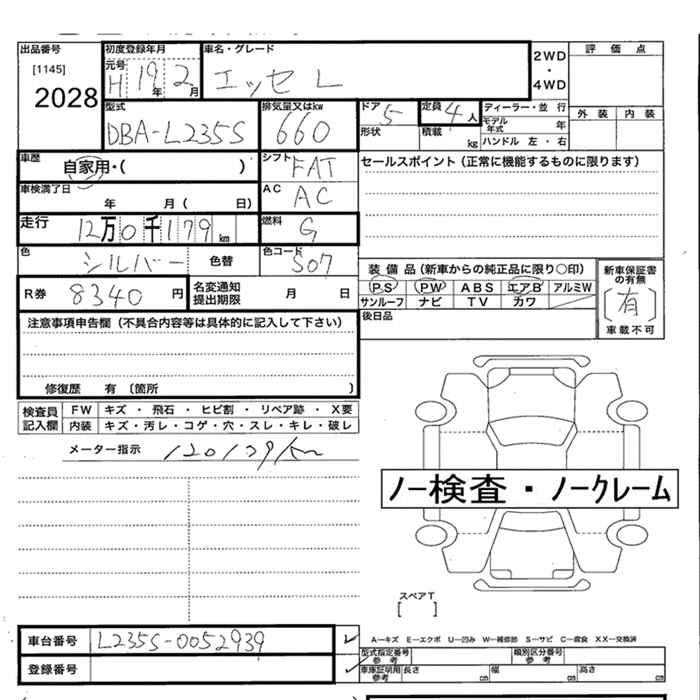 出品番号 初度登録年月 車名・グレード 評価点
[1145] 元号 2WD
2028 H 19年 2月 エッセ L ・
4WD
型式 排気量又はkw ドア 5 定員 4人 ディーラー・並 行 外装 内装
DBA-L235S 660 形状 積載 kg モデル年式 年
ハンドル 左・右
車歴 自家用・( ) シフト FAT セールスポイント (正常に機能するものに限ります)
車検満了日 年 月( 日) AC AC
走行 12万0千179km 燃料 G
色 シルバー 色替 色コード S07 装備品 (新車からの純正品に限り○印) 新車保証書の有無
R券 8340円 名変通知提出期限 月 日 PS PW ABS エアB アルミW (有)
サンルーフ ナビ TV カワ 車載不可
注意事項申告欄 (不具合内容等は具体的に記入して下さい) 後日品
修復歴 有 〔箇所 〕
検査員記入欄 FW キズ・飛石・ヒビ割・リペア跡・X要
内装 キズ・汚レ・コゲ・穴・スレ・キレ・破レ
メーター指示 120179km
ノー検査・ノークレーム
スペアT
[ ]
車台番号 L235S-0052939 A－キズ E－エクボ U－凹み W－補修跡 S－サビ C－腐食 XX－交換済
登録番号 型式指定番号 参考 類別区分番号 参考
車庫証明用参考 長さ cm 幅 cm 高さ cm